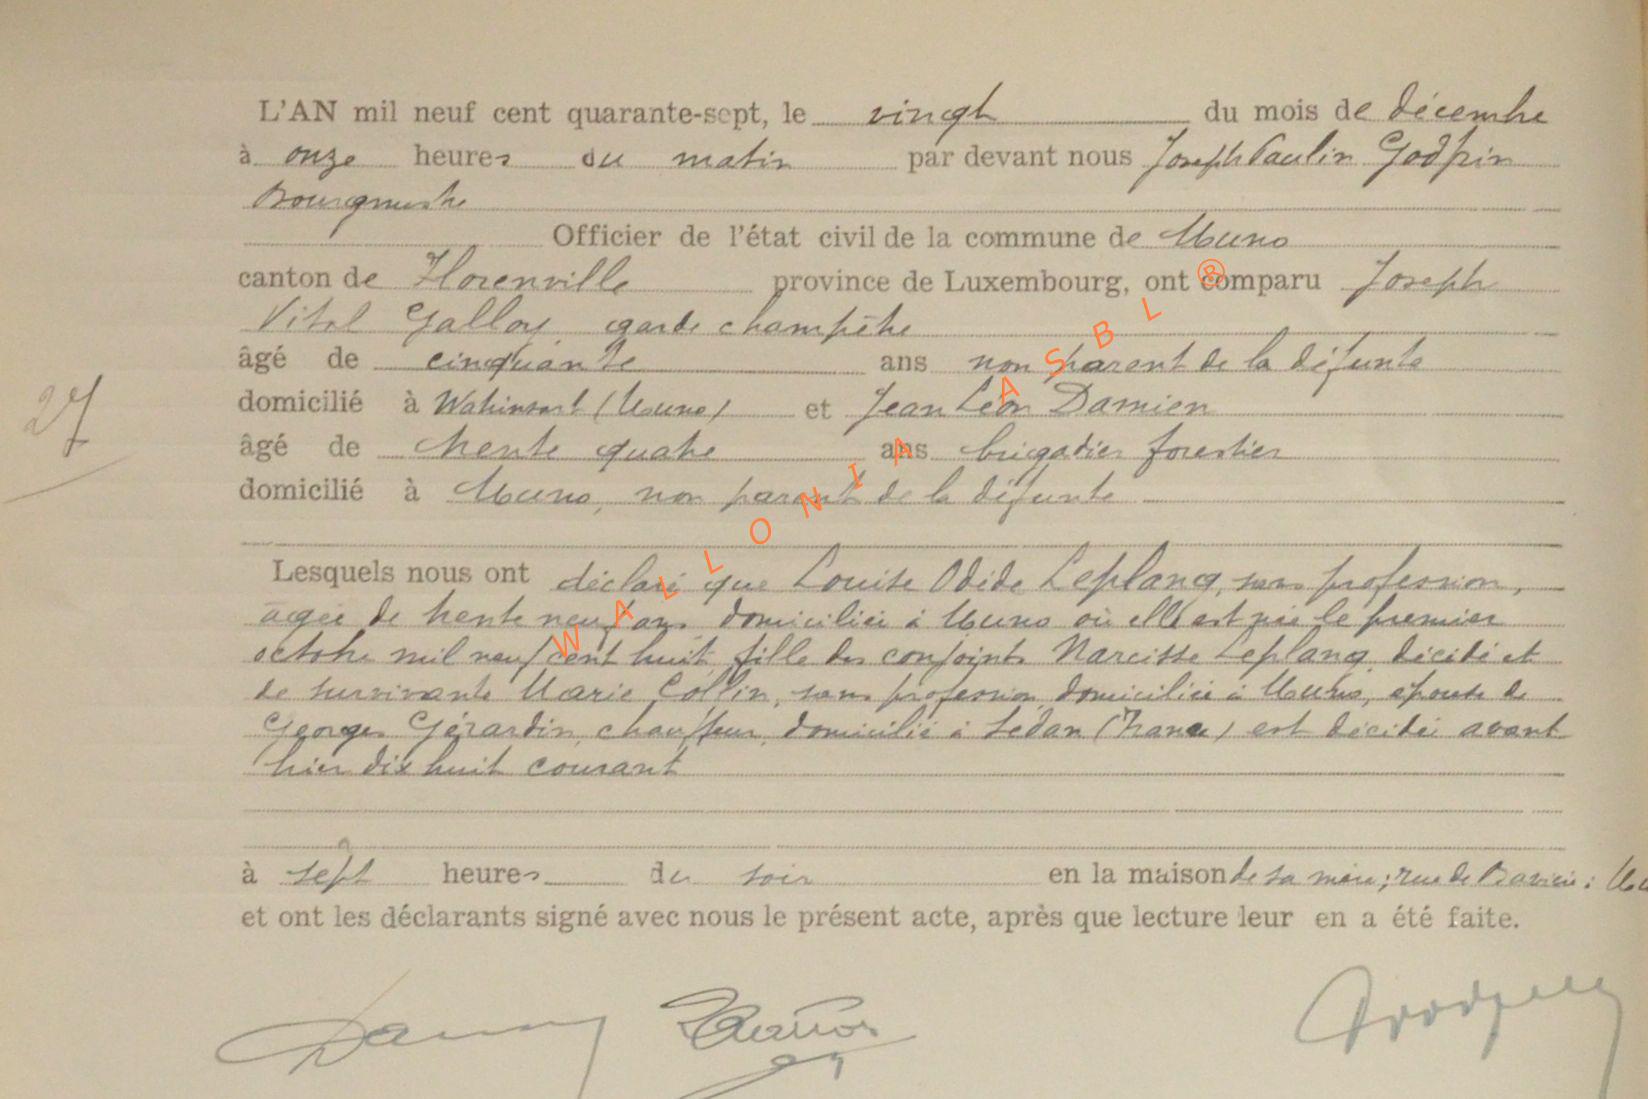 L'AN mil neuf cent quarante-sept, le vingt du mois de décembre
à onze heures du matin par devant nous Joseph Paulin Godfrin
Bourgmestre
Officier de l'état civil de la commune de Muno
canton de Florenville province de Luxembourg, ont comparu Joseph
Vital Galloy garde champêtre
âgé de cinquante ans non parent de la défunte
domicilié à Watrinsart (Muno) et Jean Léon Damien
27
âgé de trente quatre ans brigadier forestier
domicilié à Muno, non parent de la défunte
Lesquels nous ont déclaré que Louise Odide Leplang, sans profession,
agée de trente neuf ans domiciliée à Muno où elle est née le premier
octobre mil neuf cent huit, fille des conjoints Narcisse Leplang, décédé et
de survivante Marie Collin, sans profession, domiciliée à Muno, épouse de
Georges Gérardin, chauffeur, domicilié à Sedan (France) est décédée avant
hier dix huit courant
à sept heures du soir en la maison de sa mère; rue de :
et ont les déclarants signé avec nous le présent acte, après que lecture leur en a été faite.
WALLONIA ASBL ®